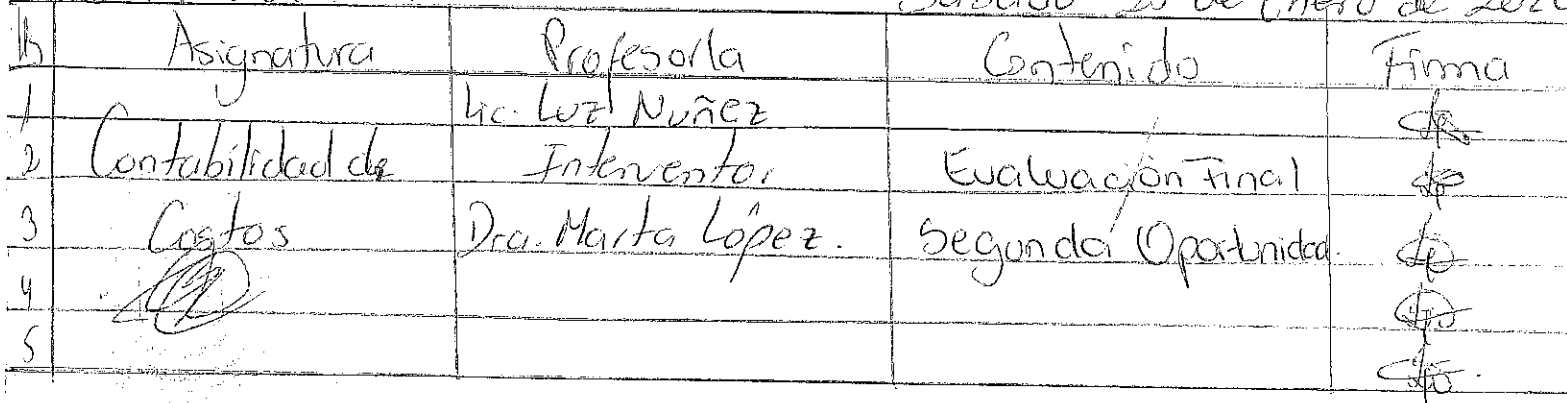 de Enero de
Asignatura Profesor/a Contenido Firma
1 Lic. Luz Nuñez
2 Contabilidad de Interventor Evaluación Final
3 Costos Dra. Marta López. Segunda Oportunidad.
4
5